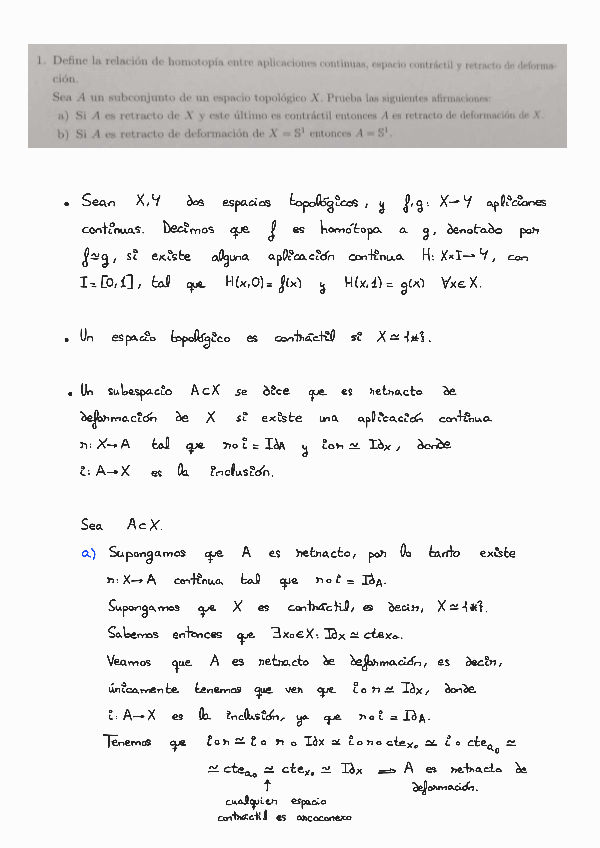 1. Define la relación de homotopía entre aplicaciones continuas, espacio contráctil y retracto de deforma-
ción.
Sea A un subconjunto de un espacio topológico X. Prueba las siguientes afirmaciones:
a) Si A es retracto de X y este último es contráctil entonces A es retracto de deformación de X.
b) Si A es retracto de deformación de X = S¹ entonces A = S¹.
• Sean X,Y dos espacios topológicos, y f,g: X→Y apliciones
continuas. Decimos que f es homótopa a g, denotado por
f≃g, si existe alguna aplicación continua H: X×I→Y, con
I=[0,1], tal que H(x,0)=f(x) y H(x,1)=g(x) ∀x∈X.
• Un espacio topológico es contráctil si X≃{*}.
• Un subespacio A⊂X se dice que es retracto de
deformación de X si existe una aplicación continua
r: X→A tal que r∘i=Id_A y i∘r≃Id_X, donde
i: A→X es la inclusión.
Sea A⊂X.
a) Supongamos que A es retracto, por lo tanto existe
r: X→A continua tal que r∘i=Id_A.
Supongamos que X es contráctil, es decir, X≃{*}.
Sabemos entonces que ∃x₀∈X: Id_X≃cte_x₀.
Veamos que A es retracto de deformación, es decir,
únicamente tenemos que ver que i∘r≃Id_X, donde
i: A→X es la inclusión, ya que r∘i=Id_A.
Tenemos que i∘r≃i∘r∘Id_X≃i∘r∘cte_x₀≃i∘cte_a₀≃
≃cte_a₀≃cte_x₀≃Id_X ⟹ A es retracto de
deformación.
↑
cualquier espacio
contráctil es arcoconexo